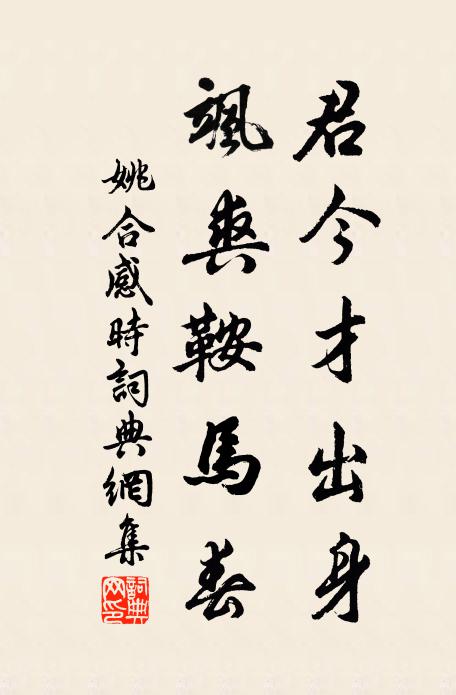 君今才出身
颯爽鞍馬春
姚合感時詞典網集
詞典网印